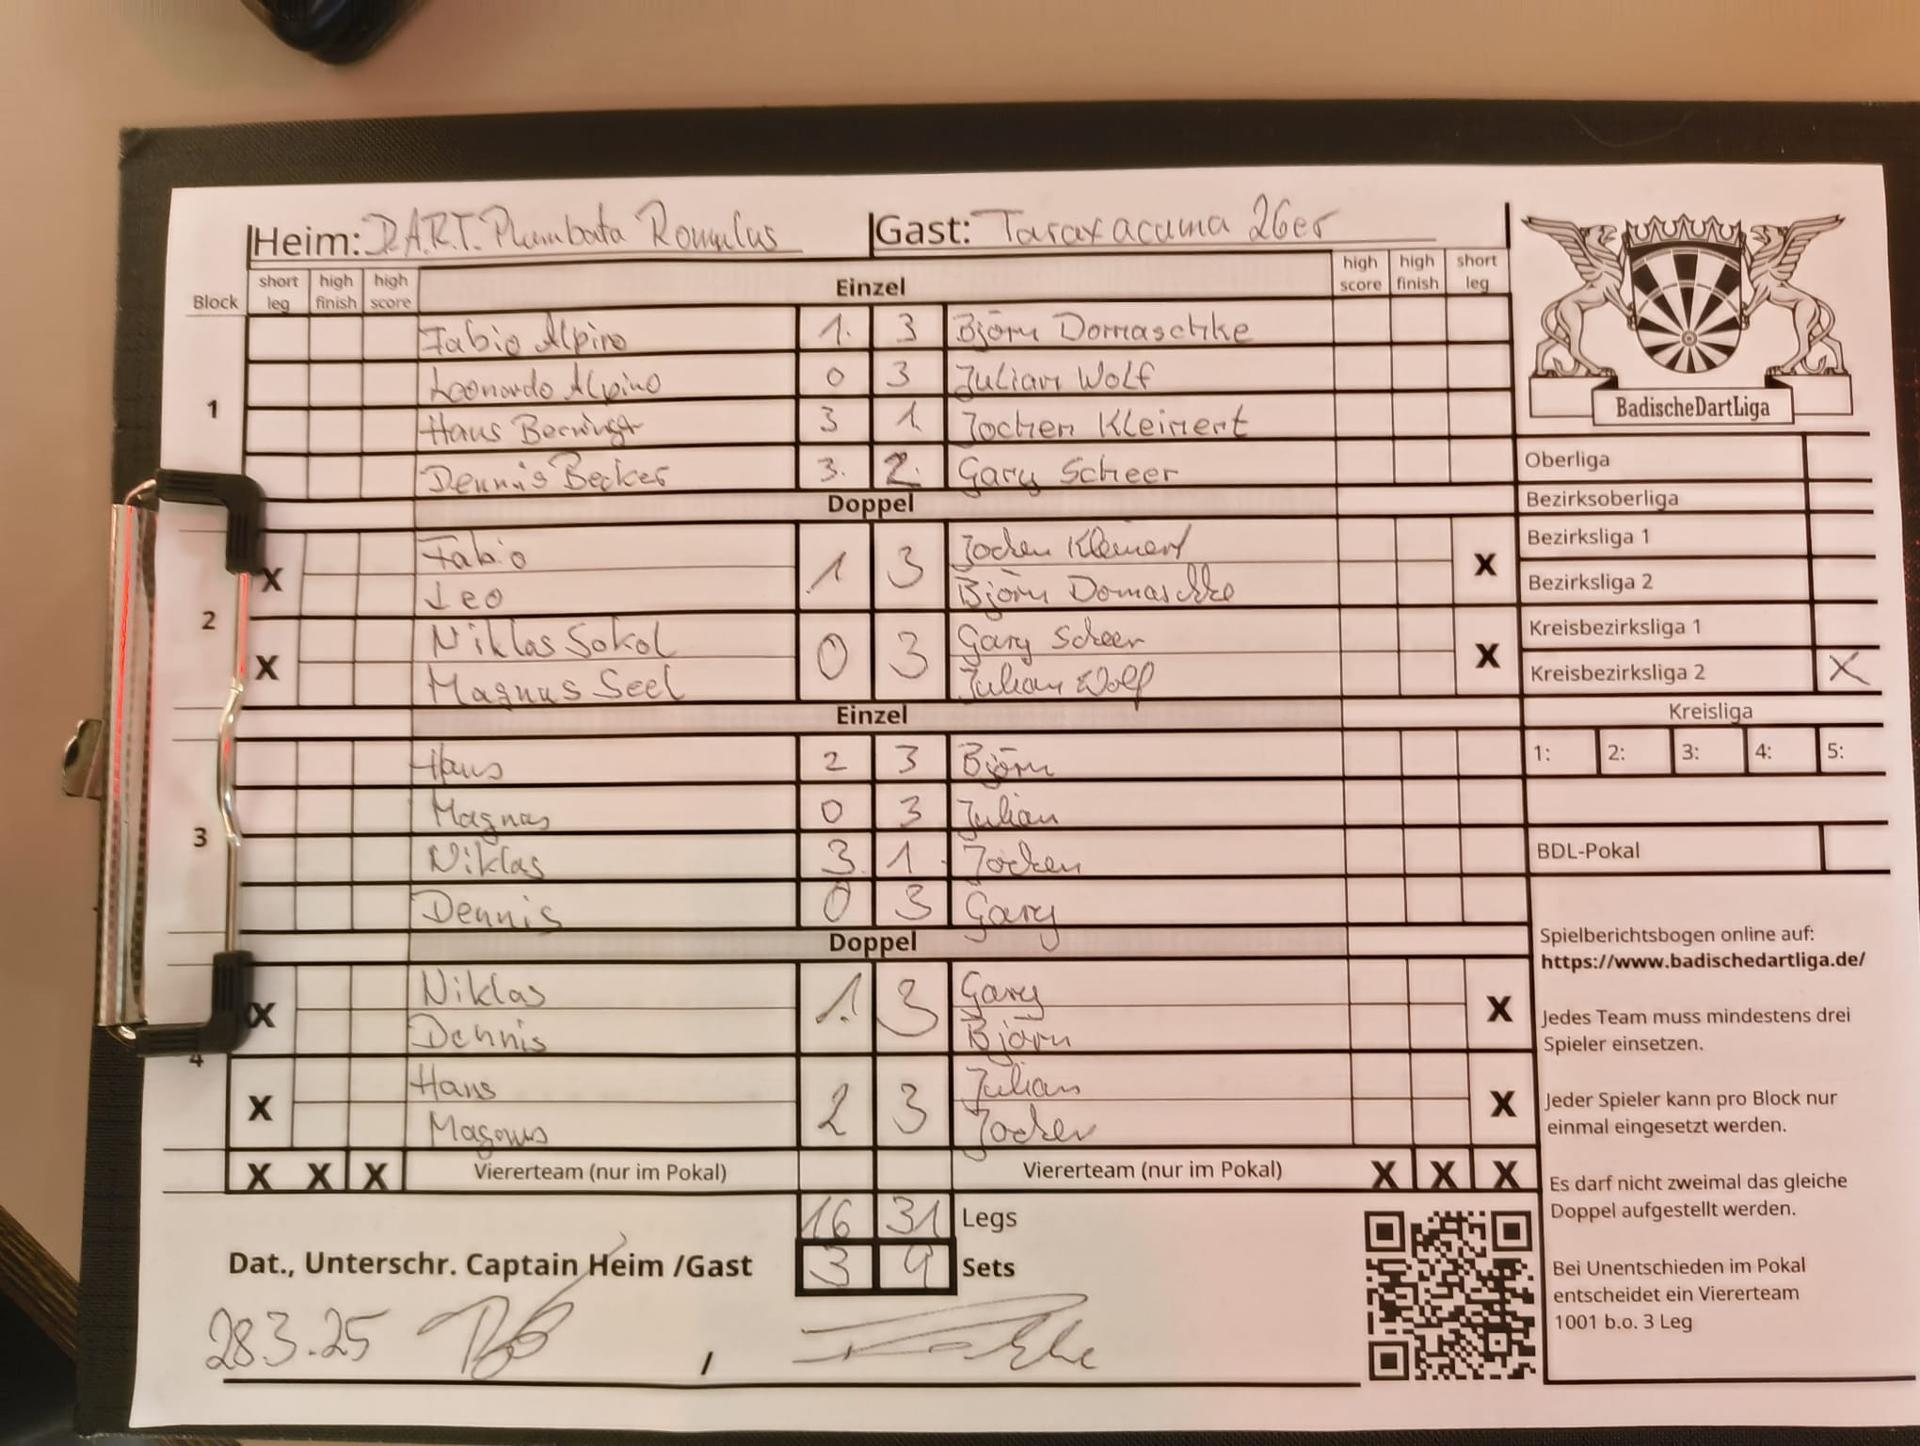 Heim: D.A.R.T. Plumbata Romulus Gast: Taraxacuma 26er
Block short leg high finish high score Einzel high score high finish short leg
1
Fabio Alpino 1. 3 Björn Domaschke
Leonardo Alpino 0 3 Julian Wolf
Hans 3 1. Jochen Kleinert
Dennis Becker 3. 2. Gary Scheer
Doppel
2
X Fabio 1 3 Jochen Kleinert X
Leo Björn Domaschke
X Niklas Sokol 0 3 Gary Scheer X
Magnus Seel Julian Wolf
Einzel
3
Hans 2 3 Björn
Magnus 0 3 Julian
Niklas 3. 1. Jochen
Dennis 0 3 Gary
Doppel
4
X Niklas 1. 3 Gary X
Dennis Björn
X Hans 2 3 Julian X
Magnus Jochen
X X X Viererteam (nur im Pokal) Viererteam (nur im Pokal) X X X
16 31 Legs
3 9 Sets
Dat., Unterschr. Captain Heim /Gast
28.3.25 /
BadischeDartLiga
Oberliga
Bezirksoberliga
Bezirksliga 1
Bezirksliga 2
Kreisbezirksliga 1
Kreisbezirksliga 2 X
Kreisliga
1: 2: 3: 4: 5:
BDL-Pokal
Spielberichtsbogen online auf:
https://www.badischedartliga.de/
Jedes Team muss mindestens drei
Spieler einsetzen.
Jeder Spieler kann pro Block nur
einmal eingesetzt werden.
Es darf nicht zweimal das gleiche
Doppel aufgestellt werden.
Bei Unentschieden im Pokal
entscheidet ein Viererteam
1001 b.o. 3 Leg